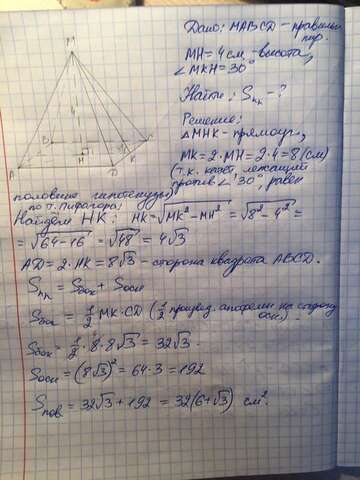 Дано: MABCD – правильн.
пир.
MH = 4 см – высота,
∠MKH = 30°
Найти: Sпп – ?
Решение:
△MHK – прямоуг.,
MK = 2·MH = 2·4 = 8 (см)
(т.к. катет, лежащий
против ∠ 30°, равен
половине гипотенузы)
по т. Пифагора
Найдём HK: HK = √MK² – MH² = √8² – 4² =
= √64 – 16 = √48 = 4√3
AD = 2·HK = 8√3 – сторона квадрата ABCD.
Sпп = Sбок + Sосн
Sбок = 1/2 MK·CD (1/2 произвед. апофемы на сторону
осн.).
Sбок = 1/2·8·8√3 = 32√3.
Sосн = (8√3)² = 64·3 = 192
Sпов = 32√3 + 192 = 32(6+√3) см².
M
4
B
C
A
H
D
K